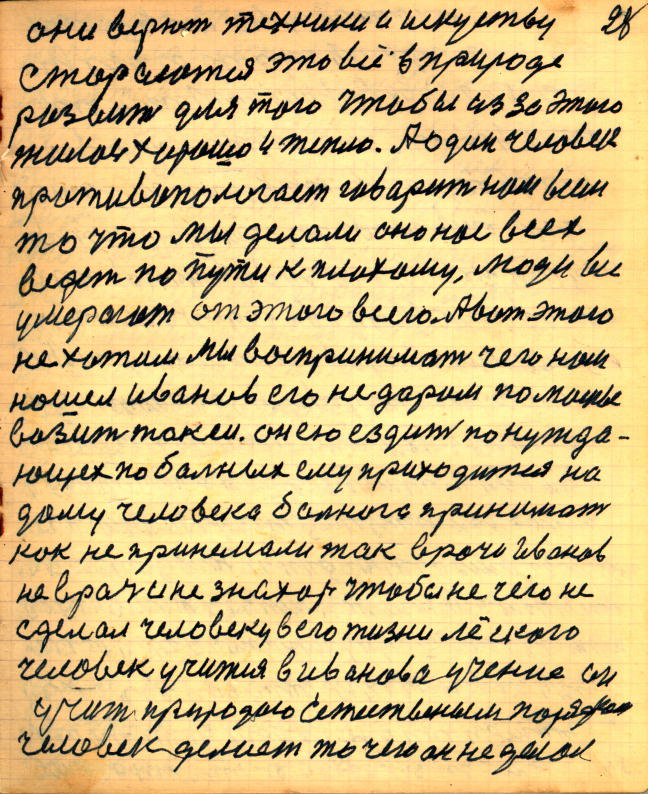 они верют техники и искуству 28
стораются это всё в природе
развит для того чтобы из за этого
жилось хорошо и тепло. А один человек
притивопологает говарит нам всем
то что мы делали оно нас всех
ведет по пути к плохому, люди все
умерают от этого всего. А вот этого
не хотим мы воспринимат чего нам
нашел Иванов его не даром по
вазит такси. он ею ездит по нужда-
ющех по балных ему приходится на
дому человека балного принимат
как не принемали так врачи Иванов
не врач и не знахор чтобы не чего не
сделал человеку в его жизни лёгкого
человек учится в Иванова учение он
учит природою естественым порядком
человек делает то чего он не делал